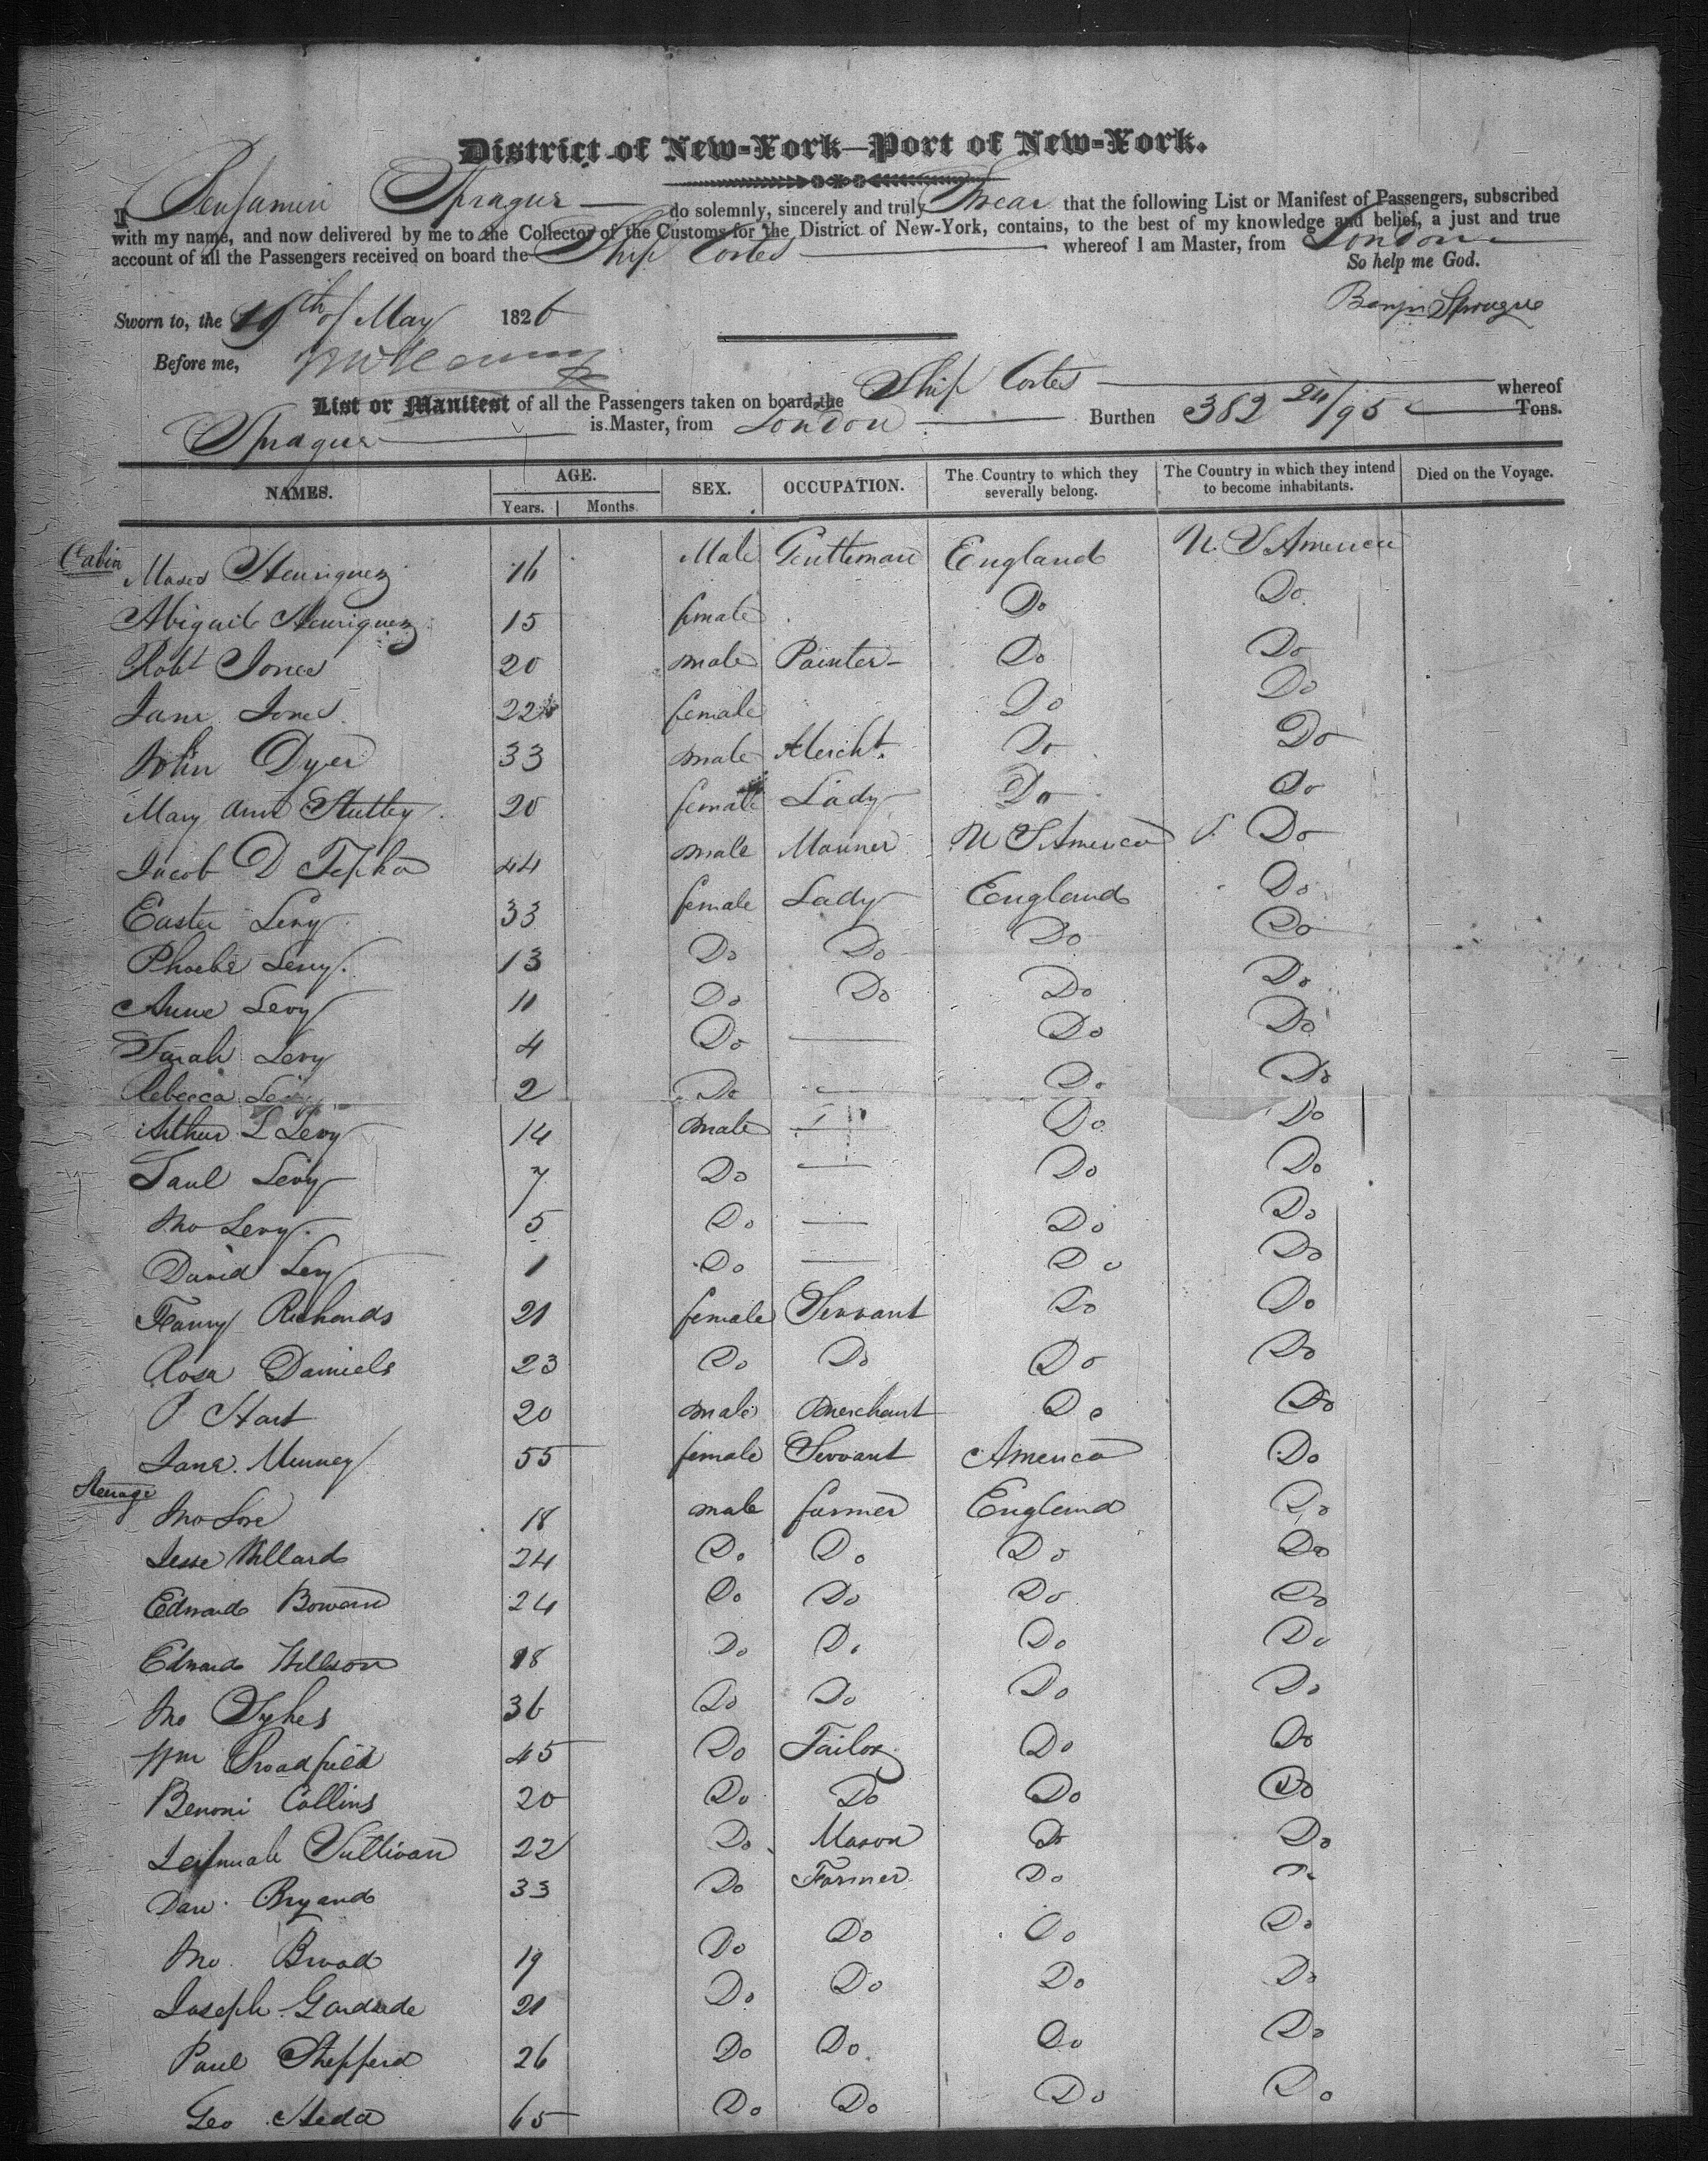 District of New-York—Port of New-York.
I Benjamin Sprague do solemnly, sincerely and truly Swear that the following List or Manifest of Passengers, subscribed
with my name, and now delivered by me to the Collector of the Customs for the District of New-York, contains, to the best of my knowledge and belief, a just and true
account of all the Passengers received on board the Ship Cortes whereof I am Master, from London
So help me God.
Sworn to, the 19th of May 1826
Benjn Sprague
Before me,
List or Manifest of all the Passengers taken on board the Ship Cortes whereof
Sprague is Master, from London Burthen 382 24/95 Tons.
NAMES. AGE. Years. Months. SEX. OCCUPATION. The Country to which they severally belong. The Country in which they intend to become inhabitants. Died on the Voyage.
Cabin
Moses Henriquez 16 Male Gentleman England U. S America
Abigail Henriquez 15 female Do Do
Robt Jones 20 male Painter Do Do
Jane Jones 22 female Do Do
John Dyer 33 male Mercht. Do Do
Mary Ann 20 female Lady Do Do
Jacob D 44 male Mariner U S America Do
Easter Levy 33 female Lady England Do
Phoebe Levy 13 Do Do Do Do
Anne Levy 11 Do Do Do Do
Sarah Levy 4 Do — Do Do
Rebecca Levy 2 Do — Do Do
Arthur L Levy 14 male — Do Do
Saul Levy 7 Do — Do Do
Jno Levy 5 Do — Do Do
David Levy 1 Do — Do Do
Fanny Richards 21 female Servant Do Do
Rosa Daniels 23 Do Do Do Do
P Hart 20 male Merchant Do Do
Jane Munney 55 female Servant America Do
Steerage
Jno Love 18 male farmer England Do
Jesse Willard 24 Do Do Do Do
Edward Bowam 24 Do Do Do Do
Edward Willson 18 Do Do Do Do
Jno Sykes 36 Do Do Do Do
Wm Broadfield 45 Do Tailor Do Do
Benoni Collins 20 Do Do Do Do
Sullivan 22 Do Mason Do Do
Dan. Bryand 33 Do Farmer Do
Jno. Broad 19 Do Do Do Do
Joseph 21 Do Do Do Do
Paul Shepperd 26 Do Do Do Do
Geo 65 Do Do Do Do